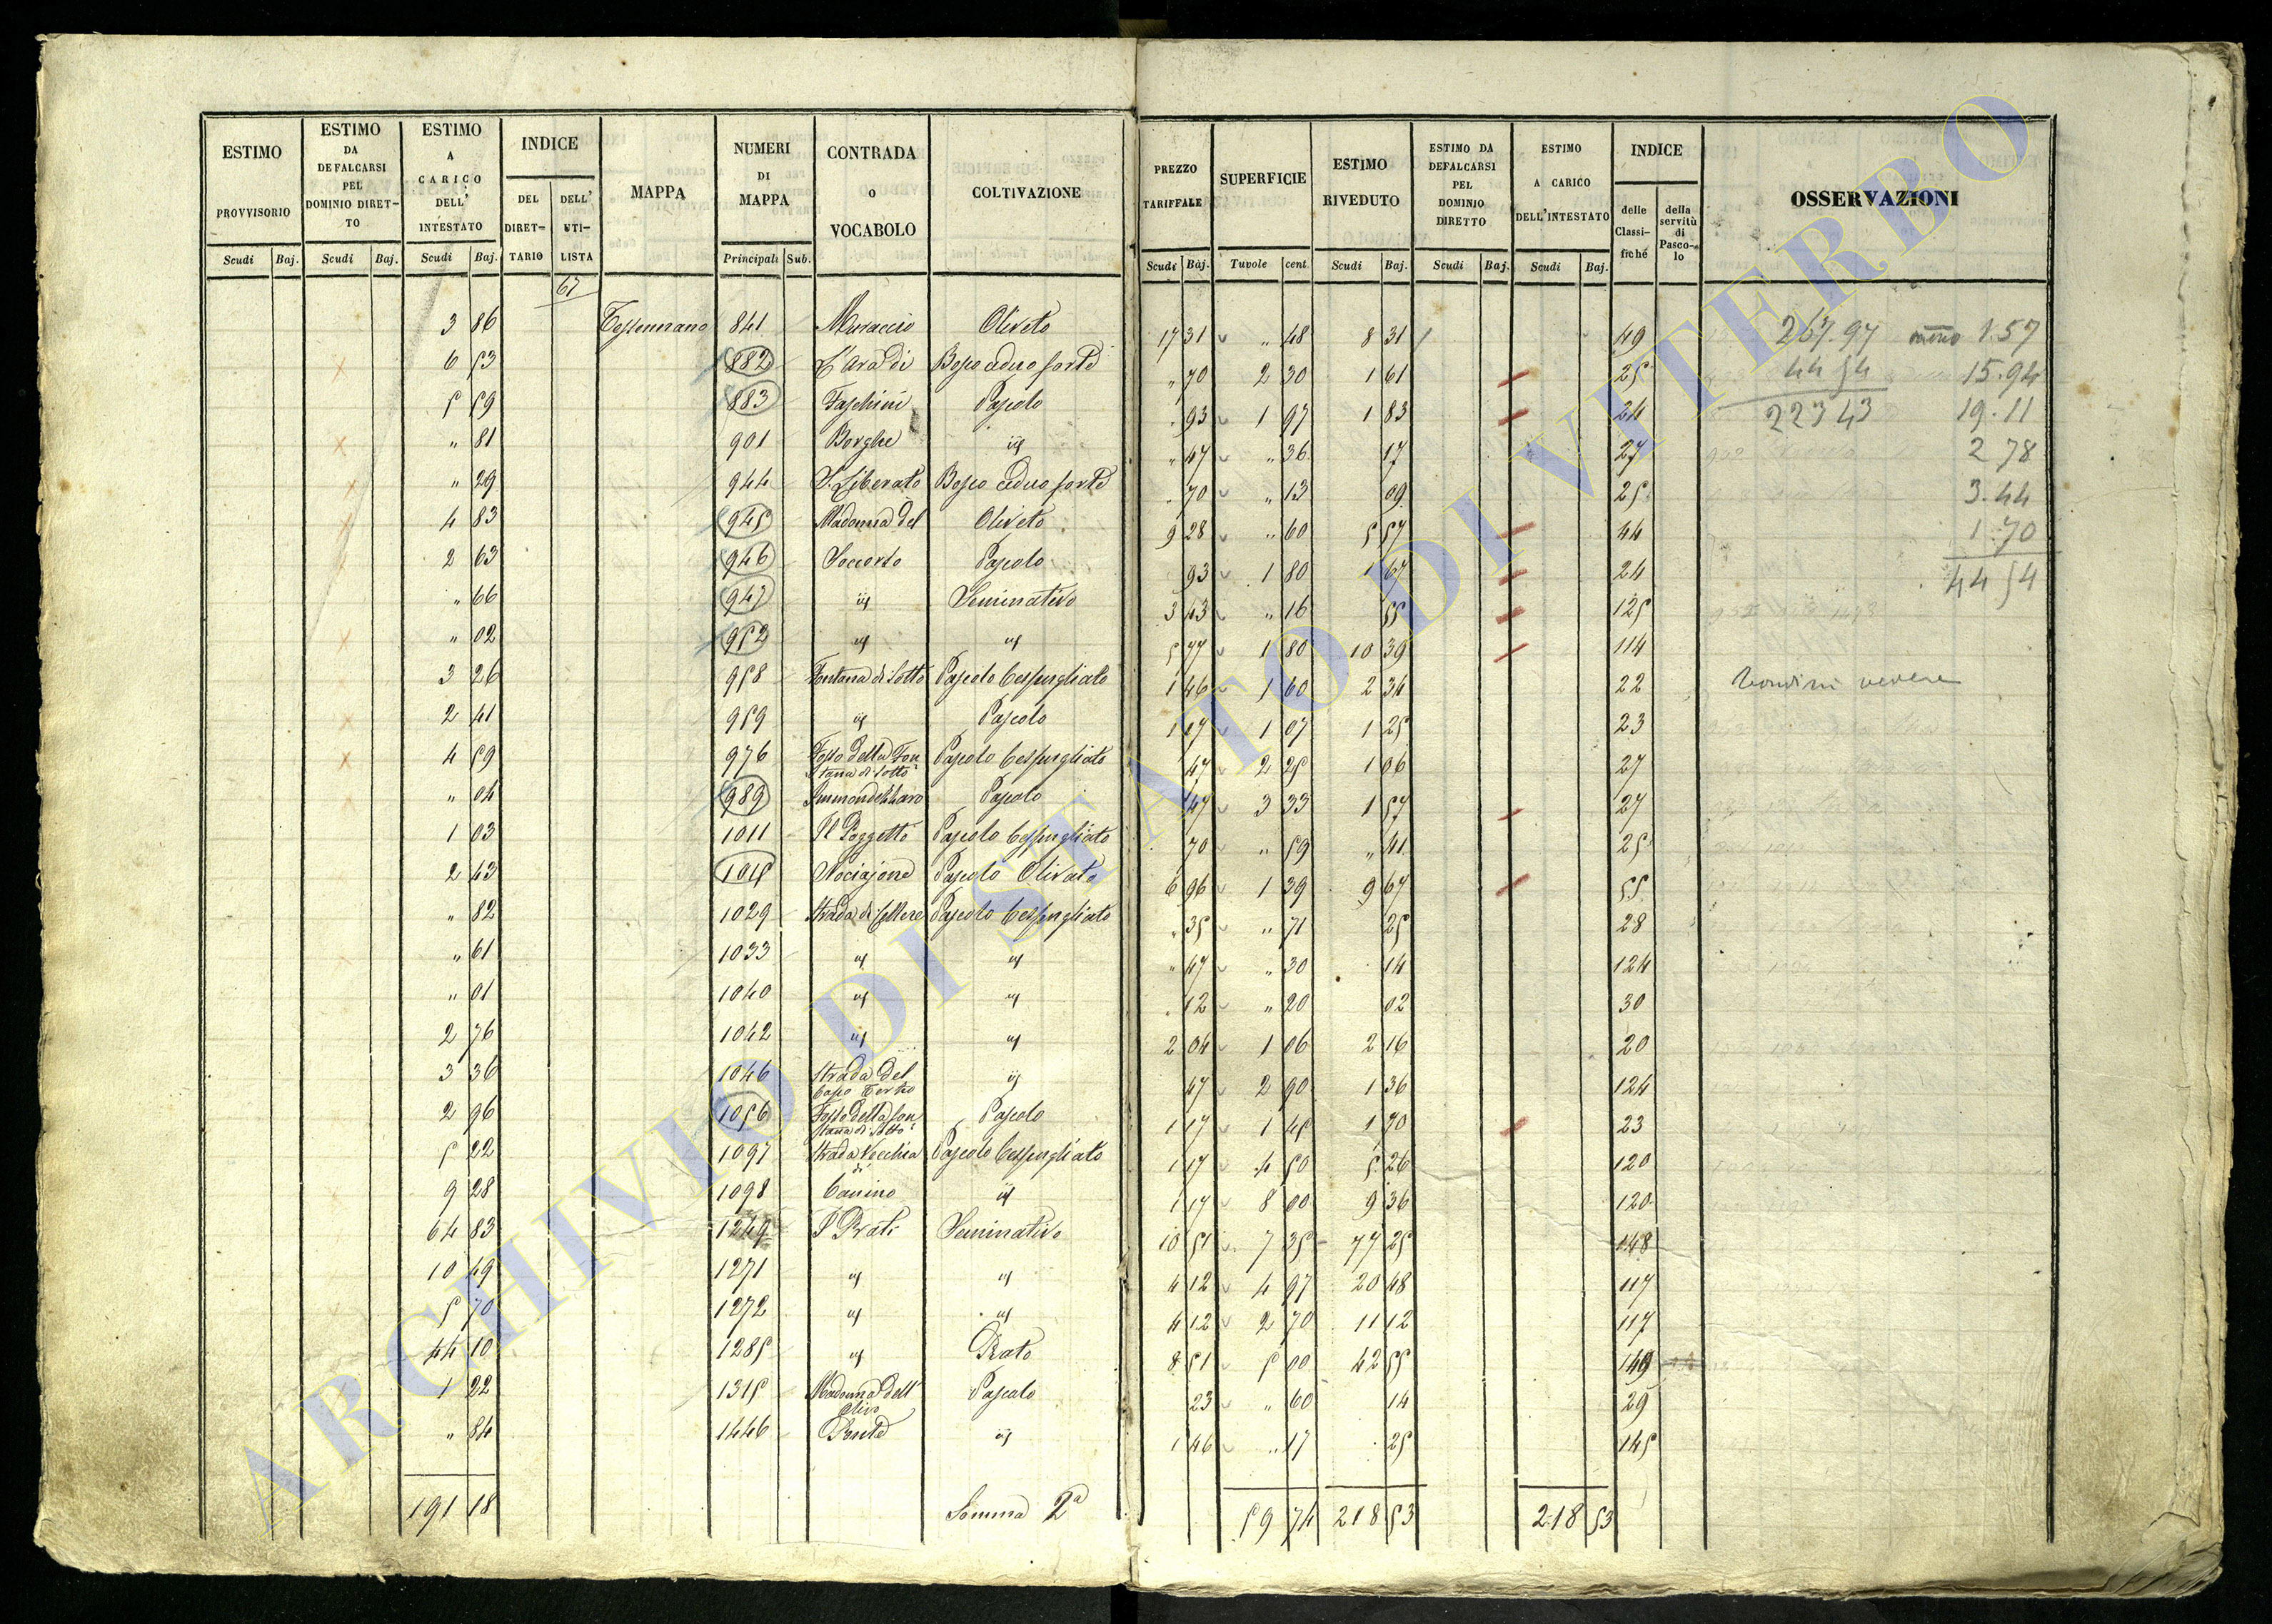 ESTIMO PROVVISORIO Scudi Baj.
ESTIMO DA DEFALCARSI PEL DOMINIO DIRETTO Scudi Baj.
ESTIMO A CARICO DELL' INTESTATO Scudi Baj.
INDICE DEL DIRETTARIO DELL' UTILISTA
MAPPA
NUMERI DI MAPPA Principali Sub.
CONTRADA o VOCABOLO
COLTIVAZIONE
PREZZO TARIFFALE Scudi Baj.
SUPERFICIE Tavole cent.
ESTIMO RIVEDUTO Scudi Baj.
ESTIMO DA DEFALCARSI PEL DOMINIO DIRETTO Scudi Baj.
ESTIMO A CARICO DELL'INTESTATO Scudi Baj.
INDICE delle Classifiché della servitù di Pascolo
OSSERVAZIONI
67
3 86 Tessennano 841 Muraccio Oliveto 17 31 " 48 8 31 49
6 53 882 L'Ara di Bosco ceduo forte " 70 2 30 1 61 25
5 59 883 Faschini Pascolo " 93 1 97 1 83 24
" 81 901 Borghe id " 47 " 36 17 27
" 29 944 S. Liberato Bosco ceduo forte " 70 " 13 09 25
4 83 945 Madonna del Oliveto 9 28 " 60 5 57 44
2 63 946 Soccorso Pascolo 93 1 80 1 67 24
" 66 947 id Seminativo 3 43 " 16 55 125
" 02 952 id id 5 77 1 80 10 39 114
3 26 958 Fontana di Sotto Pascolo Cespugliato 1 46 1 60 2 34 22
2 41 959 id Pascolo 1 17 1 07 1 25 23
4 59 976 Fosso della Fontana di Sotto Pascolo Cespugliato 47 2 25 1 06 27
" 04 989 Immondezzaro Pascolo 47 3 33 1 57 27
1 03 1011 Il Poggetto Pascolo Cespugliato 70 " 59 " 41 25
2 43 1015 Nociajone Pascolo Olivato 6 96 1 39 9 67 55
" 82 1029 Strada di Cellere Pascolo Cespugliato " 35 " 71 25 28
" 61 1033 id id " 47 " 30 14 124
" 01 1040 id id " 12 " 20 02 30
2 76 1042 id id 2 04 1 06 2 16 20
3 36 1046 Strada del id 47 2 90 1 36 124
2 96 1056 Fosso della Fontana di Sotto Pascolo 1 17 1 45 1 70 23
5 22 1097 Strada Vecchia di Pascolo Cespugliato 1 17 4 50 5 26 120
9 28 1098 Canino id 1 17 8 00 9 36 120
64 83 1249 I Prati Seminativo 10 51 7 35 77 25 148
10 49 1271 id id 4 12 4 97 20 48 117
5 70 1272 id id 4 12 2 70 11 12 117
44 10 1285 id Prato 8 51 5 00 42 55 149
1 22 1315 Madonna dell' Olivo Pascolo 23 " 60 14 29
" 84 1446 Ponte id 1 46 " 17 25 145
191 18 Somma 2a 59 74 218 53 218 53
267.97
44 54
223 43
meno 1.57
15.94
19.11
2 78
3.44
1.70
44 54
vedere
ARCHIVIO DI STATO DI VITERBO